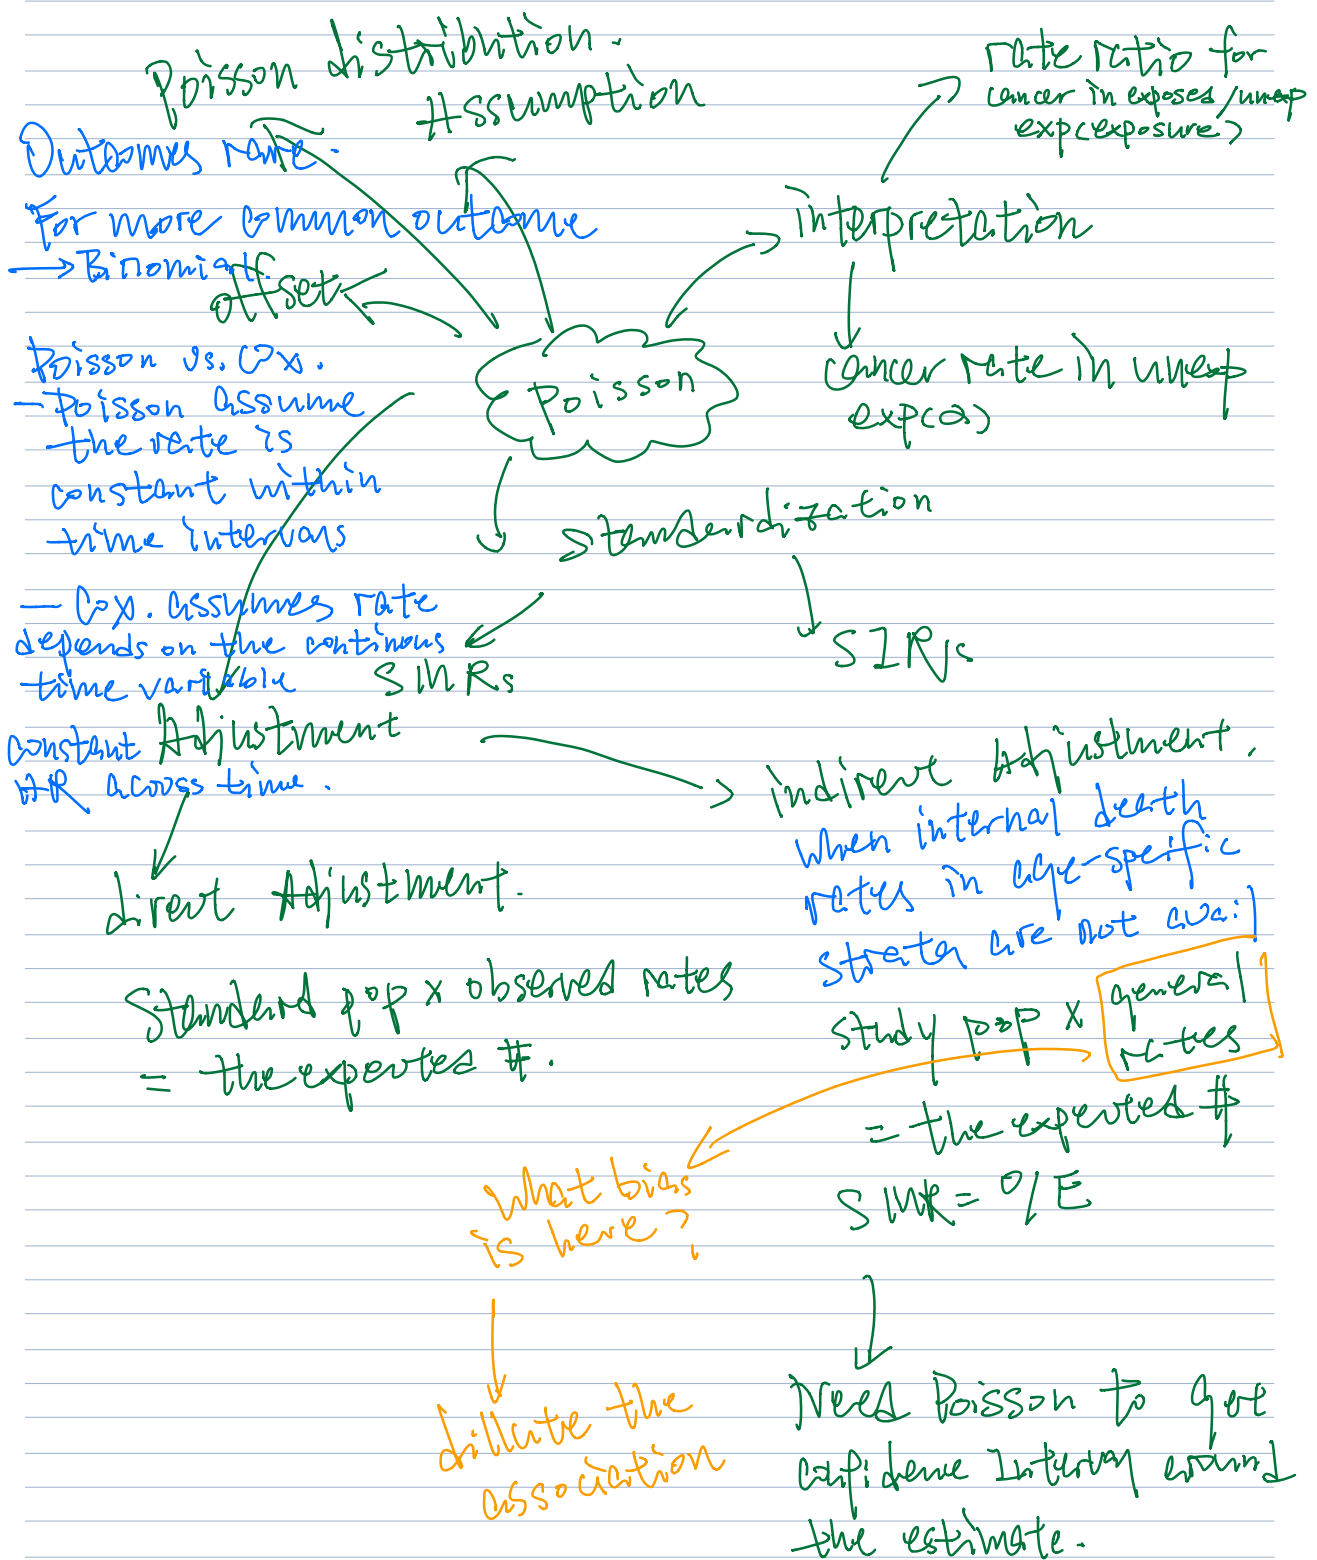 Poisson distribution.
Assumption
Outcomes rare.
For more common outcome
→ Binomial.
offset
Poisson vs. Cox.
- Poisson assume
the rate is
constant within
time intervals
- Cox. assumes rate
depends on the continous
time variable
constant
HR across time.
Poisson
rate ratio for
cancer in exposes/unexp
exp(exposure)
interpretation
cancer rate in unexp
exp(a)
standardization
SMRs
SIRs
Adjustment
direct Adjustment.
Standard pop x observed rates
= the expected #.
indirect Adjustment.
when internal death
rates in age-speific
strata are not avail
study pop x general
rates
= the expected #
SMR = O/E
What bias
is here?
dillute the
association
Need Poisson to get
confidence Interval around
the estimate.